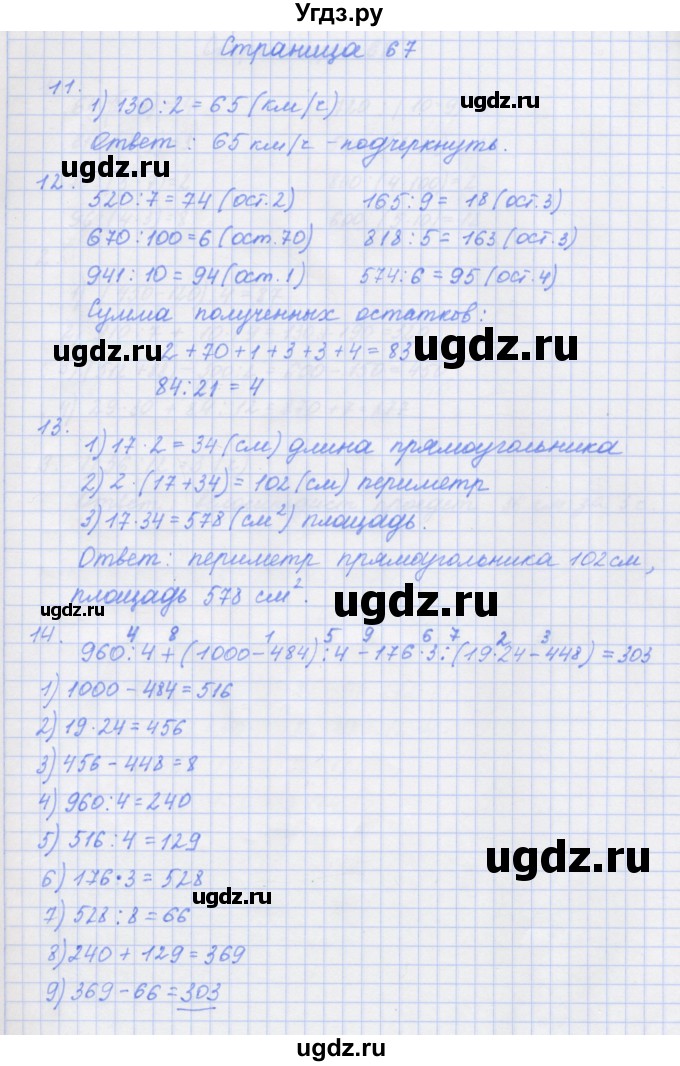 Угдз.ру
Страница 67
11.
1) 130 : 2 = 65 (км/ч)
ugdz.ru
Ответ: 65 км/ч - подчеркнуть.
ugdz.ru
ugdz.ru
12.
520 : 7 = 74 (ост. 2) 165 : 9 = 18 (ост. 3)
670 : 100 = 6 (ост. 70) 818 : 5 = 163 (ост. 3)
941 : 10 = 94 (ост. 1) 574 : 6 = 95 (ост. 4)
Сумма полученных остатков:
ugdz.ru 2 + 70 + 1 + 3 + 3 + 4 = 83 ugdz.ru
84 : 21 = 4
13.
1) 17 · 2 = 34 (см) длина прямоугольника
2) 2 · (17 + 34) = 102 (см) периметр
3) 17 · 34 = 578 (см²) площадь.
Ответ: периметр прямоугольника 102 см,
площадь 578 см².
ugdz.ru ugdz.ru
14. 4 8 1 5 9 6 7 2 3
960 : 4 + (1000 - 484) : 4 - 176 · 3 : (19 · 24 - 448) = 303
1) 1000 - 484 = 516
2) 19 · 24 = 456
3) 456 - 448 = 8
4) 960 : 4 = 240
5) 516 : 4 = 129
ugdz.ru
6) 176 · 3 = 528
ugdz.ru
7) 528 : 8 = 66
8) 240 + 129 = 369
9) 369 - 66 = 303
ugdz.ru